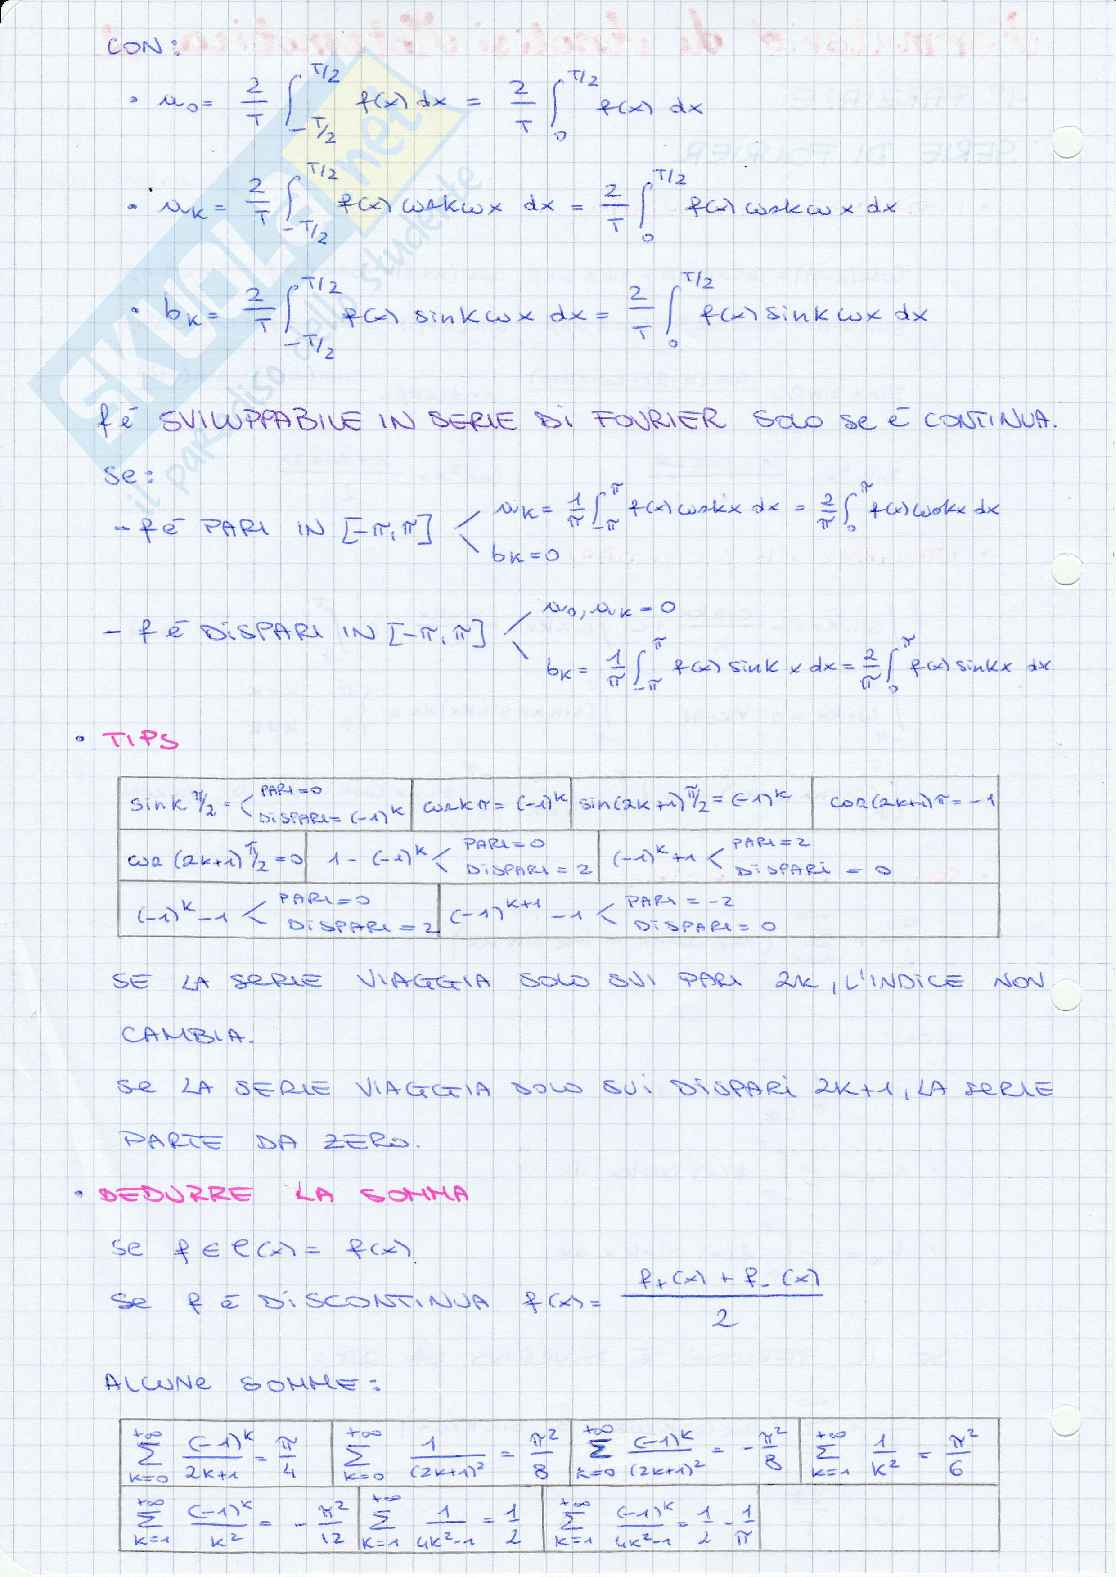 CON:
• a₀ = 2/T ∫_{-T/2}^{T/2} f(x) dx = 2/T ∫_0^{T/2} f(x) dx
• aₖ = 2/T ∫_{-T/2}^{T/2} f(x) coskωx dx = 2/T ∫_0^{T/2} f(x) coskωx dx
• bₖ = 2/T ∫_{-T/2}^{T/2} f(x) sinkωx dx = 2/T ∫_0^{T/2} f(x) sinkωx dx
SKUOLA.net
il paradiso dello studente
f è SVILUPPABILE IN SERIE DI FOURIER SOLO SE È CONTINUA.
Se:
- f è PARI IN [-π, π] < aₖ = 1/π ∫_{-π}^{π} f(x) coskx dx = 2/π ∫_0^{π} f(x) coskx dx
bₖ = 0
- f è DISPARI IN [-π, π] < a₀, aₖ = 0
bₖ = 1/π ∫_{-π}^{π} f(x) sink x dx = 2/π ∫_0^{π} f(x) sinkx dx
• TIPS
sink π/2 = < PARI = 0 DISPARI = (-1)^k | coskπ = (-1)^k | sin(2k+1)π/2 = (-1)^k | cos(2k+1)π = -1
cos(2k+1)π/2 = 0 | 1-(-1)^k < PARI = 0 DISPARI = 2 | (-1)^k+1 < PARI = 2 DISPARI = 0
(-1)^k-1 < PARI = 0 DISPARI = 2 | (-1)^{k+1} -1 < PARI = -2 DISPARI = 0
SE LA SERIE VIAGGIA SOLO SUI PARI 2K, L'INDICE NON
CAMBIA.
SE LA SERIE VIAGGIA SOLO SUI DISPARI 2K+1, LA SERIE
PARTE DA ZERO.
• DEDURRE LA SOMMA
SE f ∈ C(x) = f(x)
SE f È DISCONTINUA f(x) = (f₊(x) + f₋(x))/2
ALCUNE SOMME:
∑_{k=0}^{+∞} (-1)^k/(2k+1) = π/4 | ∑_{k=0}^{+∞} 1/(2k+1)² = π²/8 | ∑_{k=0}^{+∞} (-1)^k/(2k+1)² = -π²/8 | ∑_{k=1}^{+∞} 1/k² = π²/6
∑_{k=1}^{+∞} (-1)^k/k² = -π²/12 | ∑_{k=1}^{+∞} 1/(4k²-1) = 1/2 | ∑_{k=1}^{+∞} (-1)^k/(4k²-1) = 1/2 - 1/π